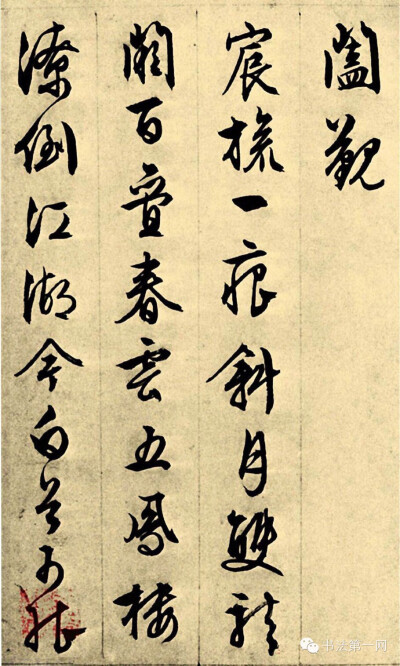 闔覲
宸旒一痕斜月雙龍
闕百疊春雲五鳳樓
潦倒江湖今白首可能
书法第一网